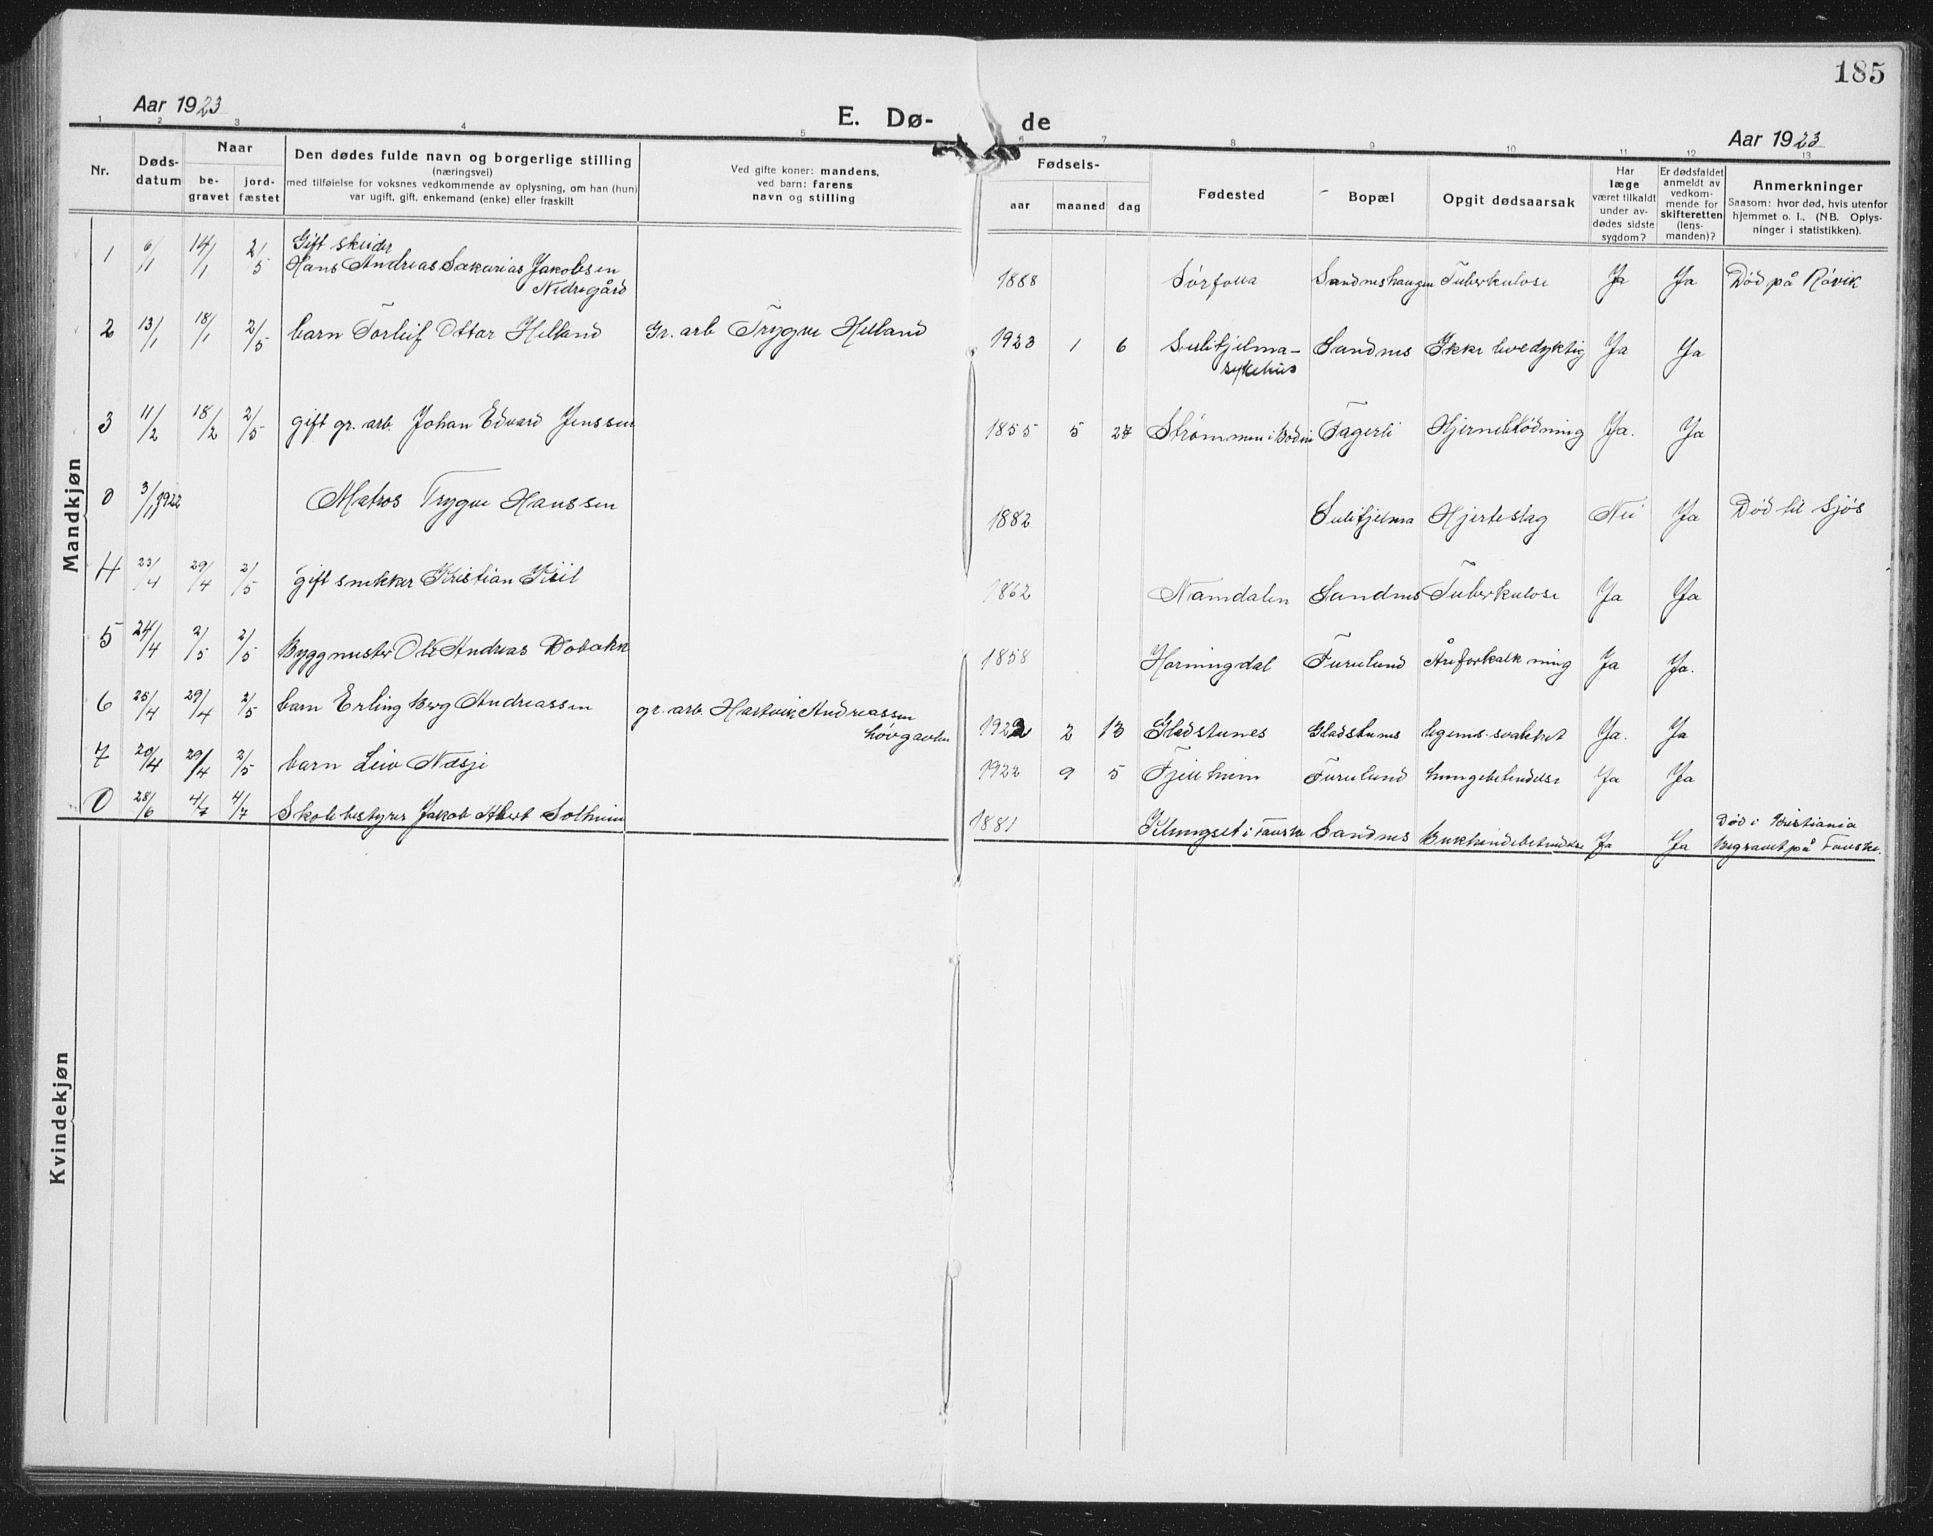 185
Aar 1923
E. Dø- de
Aar 1923
1 2 3 4 5 6 7 8 9 10 11 12 13
Nr.
Døds-
datum
Naar
be-
gravet
jord-
fæstet
Den dødes fulde navn og borgerlige stilling
(næringsvei)
med tilføielse for voksnes vedkommende av oplysning, om han (hun)
var ugift, gift, enkemand (enke) eller fraskilt
Ved gifte koner: mandens,
ved barn: farens
navn og stilling
Fødsels-
aar maaned dag
Fødested
Bopæl
Opgit dødsaarsak
Har
læge
været tilkaldt
under av-
dødes sidste
sygdom?
Er dødsfaldet
anmeldt av
vedkom-
mende for
skifteretten
(lens-
manden)?
Anmerkninger
Saasom: hvor død, hvis utenfor
hjemmet o. l., (NB. Oplys-
ninger i statistikken).
Mandkjøn
1 6/1 14/1 2/5 Gift skeider
Hans Andreas Sakarias Jakobsen
Nedregård
1888 Sørfolla Sandneshaugen Tuberkulose Ja Ja Død på Røvik
2 13/1 18/1 2/5 barn Torleif Ottar Helland Gr. arb Trygve Helland 1923 1 6 Sulitjelma-
sykehus
Sandnes Ikke levedyktig Ja Ja
3 11/2 18/2 2/5 gift gr. arb. Johan Edvard Jenssen 1855 5 27 Strømmen i Bodin Fagerli Hjerneblødning Ja. Ja
0 3/11 1922 Matros Trygve Hanssen 1882 Sulitjelma Hjerteslag Nei Ja Død til sjøs
4 23/4 29/4 2/5 gift snekker Kristian Kiil 1862 Namdalen Sandnes Tuberkulose Ja Ja
5 24/4 2/5 2/5 Byggmester Ole Andreas Dobakk 1858 Horningdal Furulund Åreforkalkning Ja Ja.
6 25/4 29/4 2/5 barn Erling Berg Andreassen gr. arb. Hartvik Andreassen
Løvgavlen
1922 2 13 Gladstunes Gladstunes legems-svakhet Ja. Ja
7 20/4 29/4 2/5 barn Leiv Næsje 1922 9 5 Fjellheim Furulund lungebetendelse Ja Ja
0 28/6 4/7 4/7 Skolebestyrer Jakob Albert Solheim 1881 Klungset i Fauske Sandnes Bukhindebetendelse Ja Ja Død i Kristiania
Begravet på Fauske.
Kvindekjøn